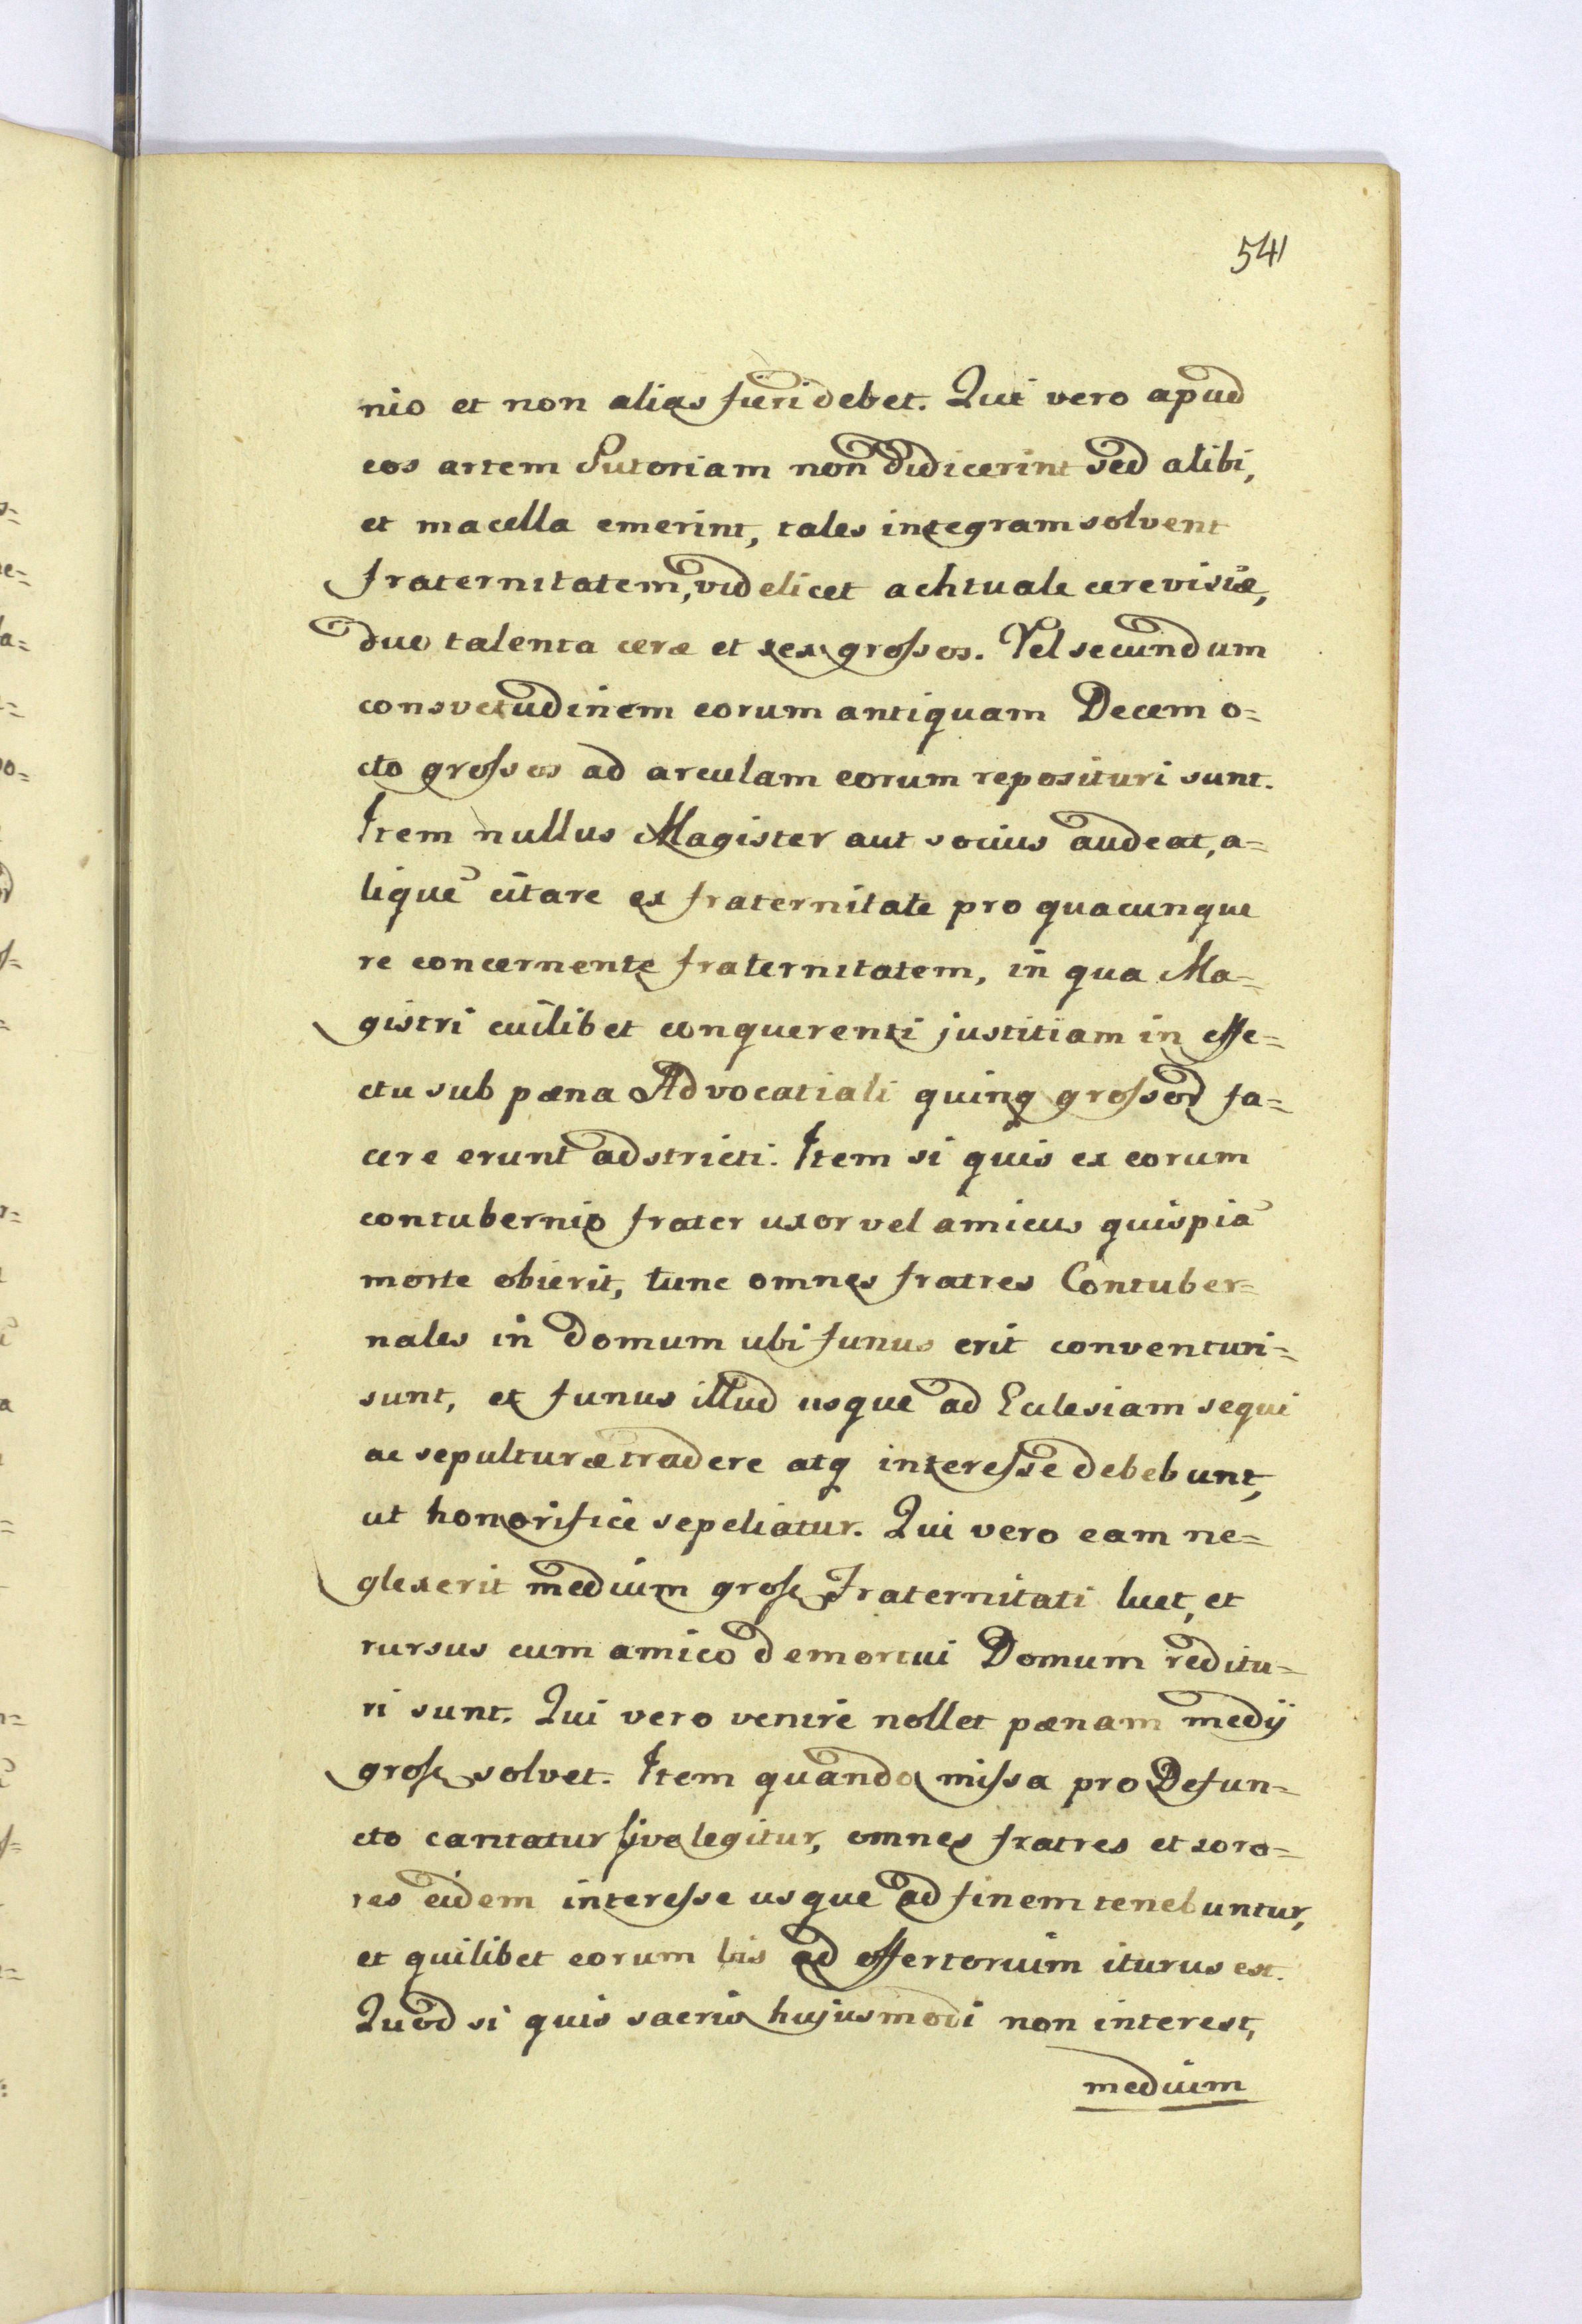 541
nio et non alias fieri debet. Qui vero apud
eos artem Sutoriam non didicerint sed alibi,
et macella emerint, tales integram solvent
fraternitatem, videlicet achtuale cerevisiæ,
duo talenta ceræ et sex grossos. Vel secundum
consvetudinem eorum antiquam Decem o=
cto grossos ad arculam eorum reposituri sunt.
Item nullus Magister aut socius audeat, a=
liquē citare ex fraternitate pro quacunque
re concernente fraternitatem, in qua Ma=
gistri cuilibet conquerenti justitiam in effe=
ctu sub pæna Advocatiali quinq grossor fa=
cere erunt adstricti. Item si quis ex eorum
contubernio frater uxor vel amicus quispiā
morte obierit, tunc omnes fratres Contuber=
nales in domum ubi funus erit conventuri=
sunt, et funus illud usque ad Eclesiam sequi
ac sepulturæ tradere atq interesse debebunt,
ut honorifice sepeliatur. Qui vero eam ne=
glexerit medium gross Fraternitati luet, et
rursus cum amico demortui Domum reditu=
ri sunt. Qui vero venire nollet pænam medij
gross solvet. Item quando missa pro Defun=
cto cantatur sive legitur, omnes fratres et soro=
res eidem interesse usque ad finem tenebuntur,
et quilibet eorum bis ad offertorium iturus est.
Quod si quis sacris hujusmodi non interest,
medium